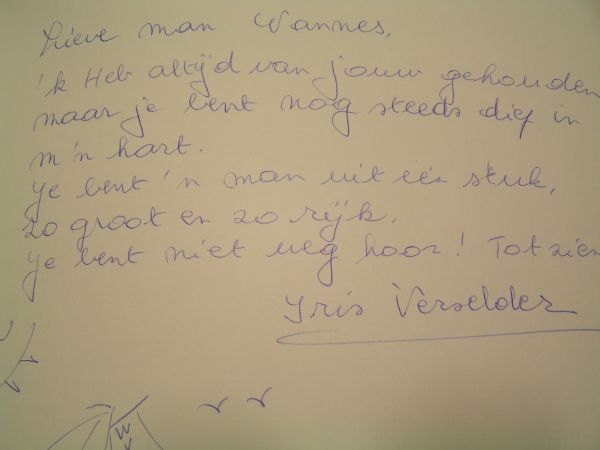 Lieve man Wannes,
'k Heb altijd van jouw gehouden
maar je bent nog steeds diep in
m'n hart.
Je bent 'n man uit één stuk,
zo groot en zo rijk.
Je bent niet weg hoor! Tot zien
Iris Verselder